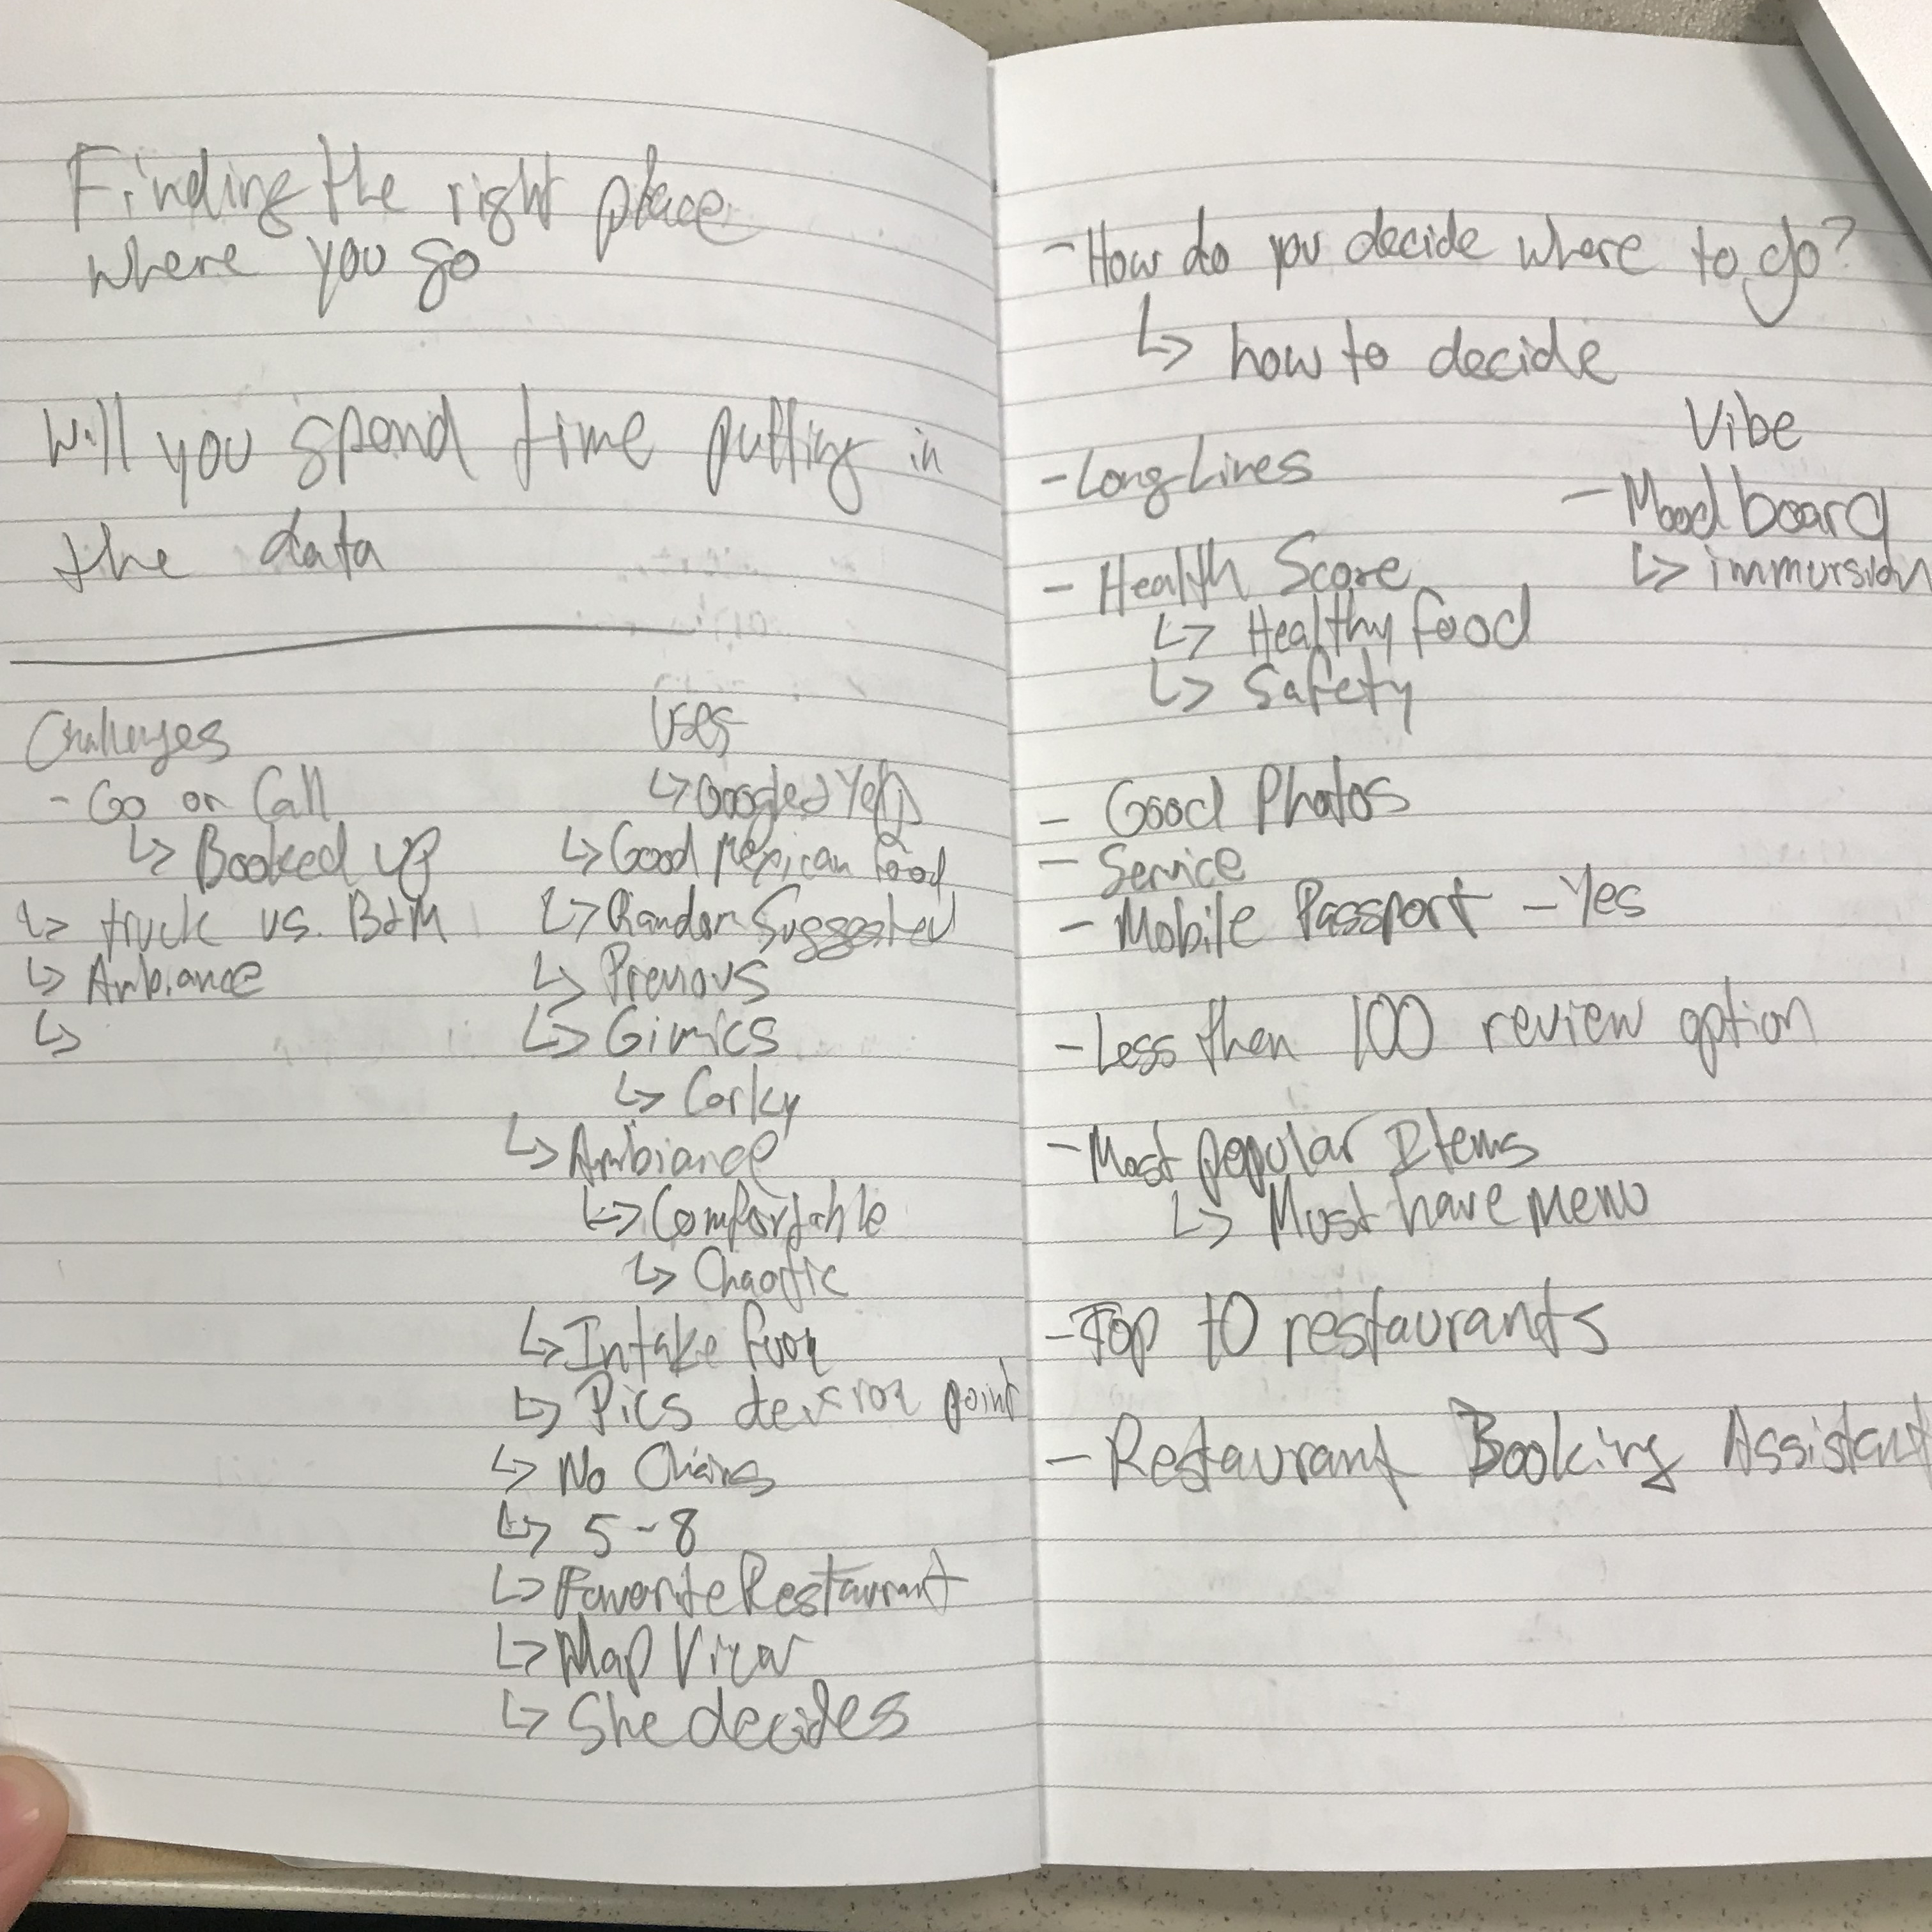 Finding the right place
where you go
Will you spend time putting in
the data
Challenges
- Go or Call
↳ Booked up
↳ truck vs. B&M
↳ Ambiance
↳
Uses
↳ Googled Yelp
↳ Good Mexican food
↳ Random Suggested
↳ Previous
↳ Gimics
↳ Corky
↳ Ambiance
↳ Comfortable
↳ Chaotic
↳ Intake
↳ Pics decision point
↳ No Chains
↳ 5-8
↳ Favorite Restaurant
↳ Map View
↳ She decides
- How do you decide where to go?
↳ how to decide
- Long Lines
Vibe
- Mood board
↳ immursion
- Health Score
↳ Healthy food
↳ Safety
- Good Photos
- Service
- Mobile Passport - Yes
- Less then 100 review option
- Most popular Items
↳ Must have menu
- Top 10 restaurants
- Restaurant Booking Assistant